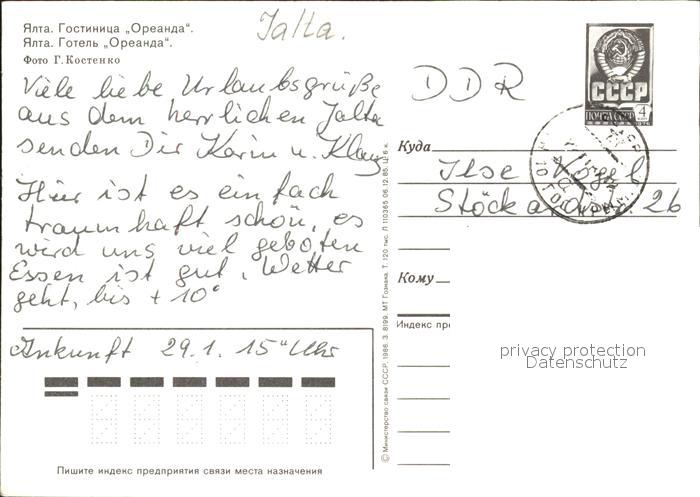 Ялта. Гостиница „Ореанда“.
Ялта. Готель „Ореанда“.
Фото Г. Костенко
Jalta.
Viele liebe Urlaubsgrüße
aus dem herrlichen Jalta
senden Dir Karin u. Klaus
Hier ist es einfach
traumhaft schön, es
wird uns viel geboten
Essen ist gut, Wetter
geht, bis + 10°
Ankunft 29.1. 15°° Uhr
Пишите индекс предприятия связи места назначения
© Министерство связи СССР, 1986. З. 8199. МТ Гознака. Т. 120 тыс. Л 110365 06.12.85. Ц. 6 к.
DDR
СССР
ПОЧТА СССР 4
Куда
Ilse Vogel
26
Кому
Индекс пр
privacy protection
Datenschutz